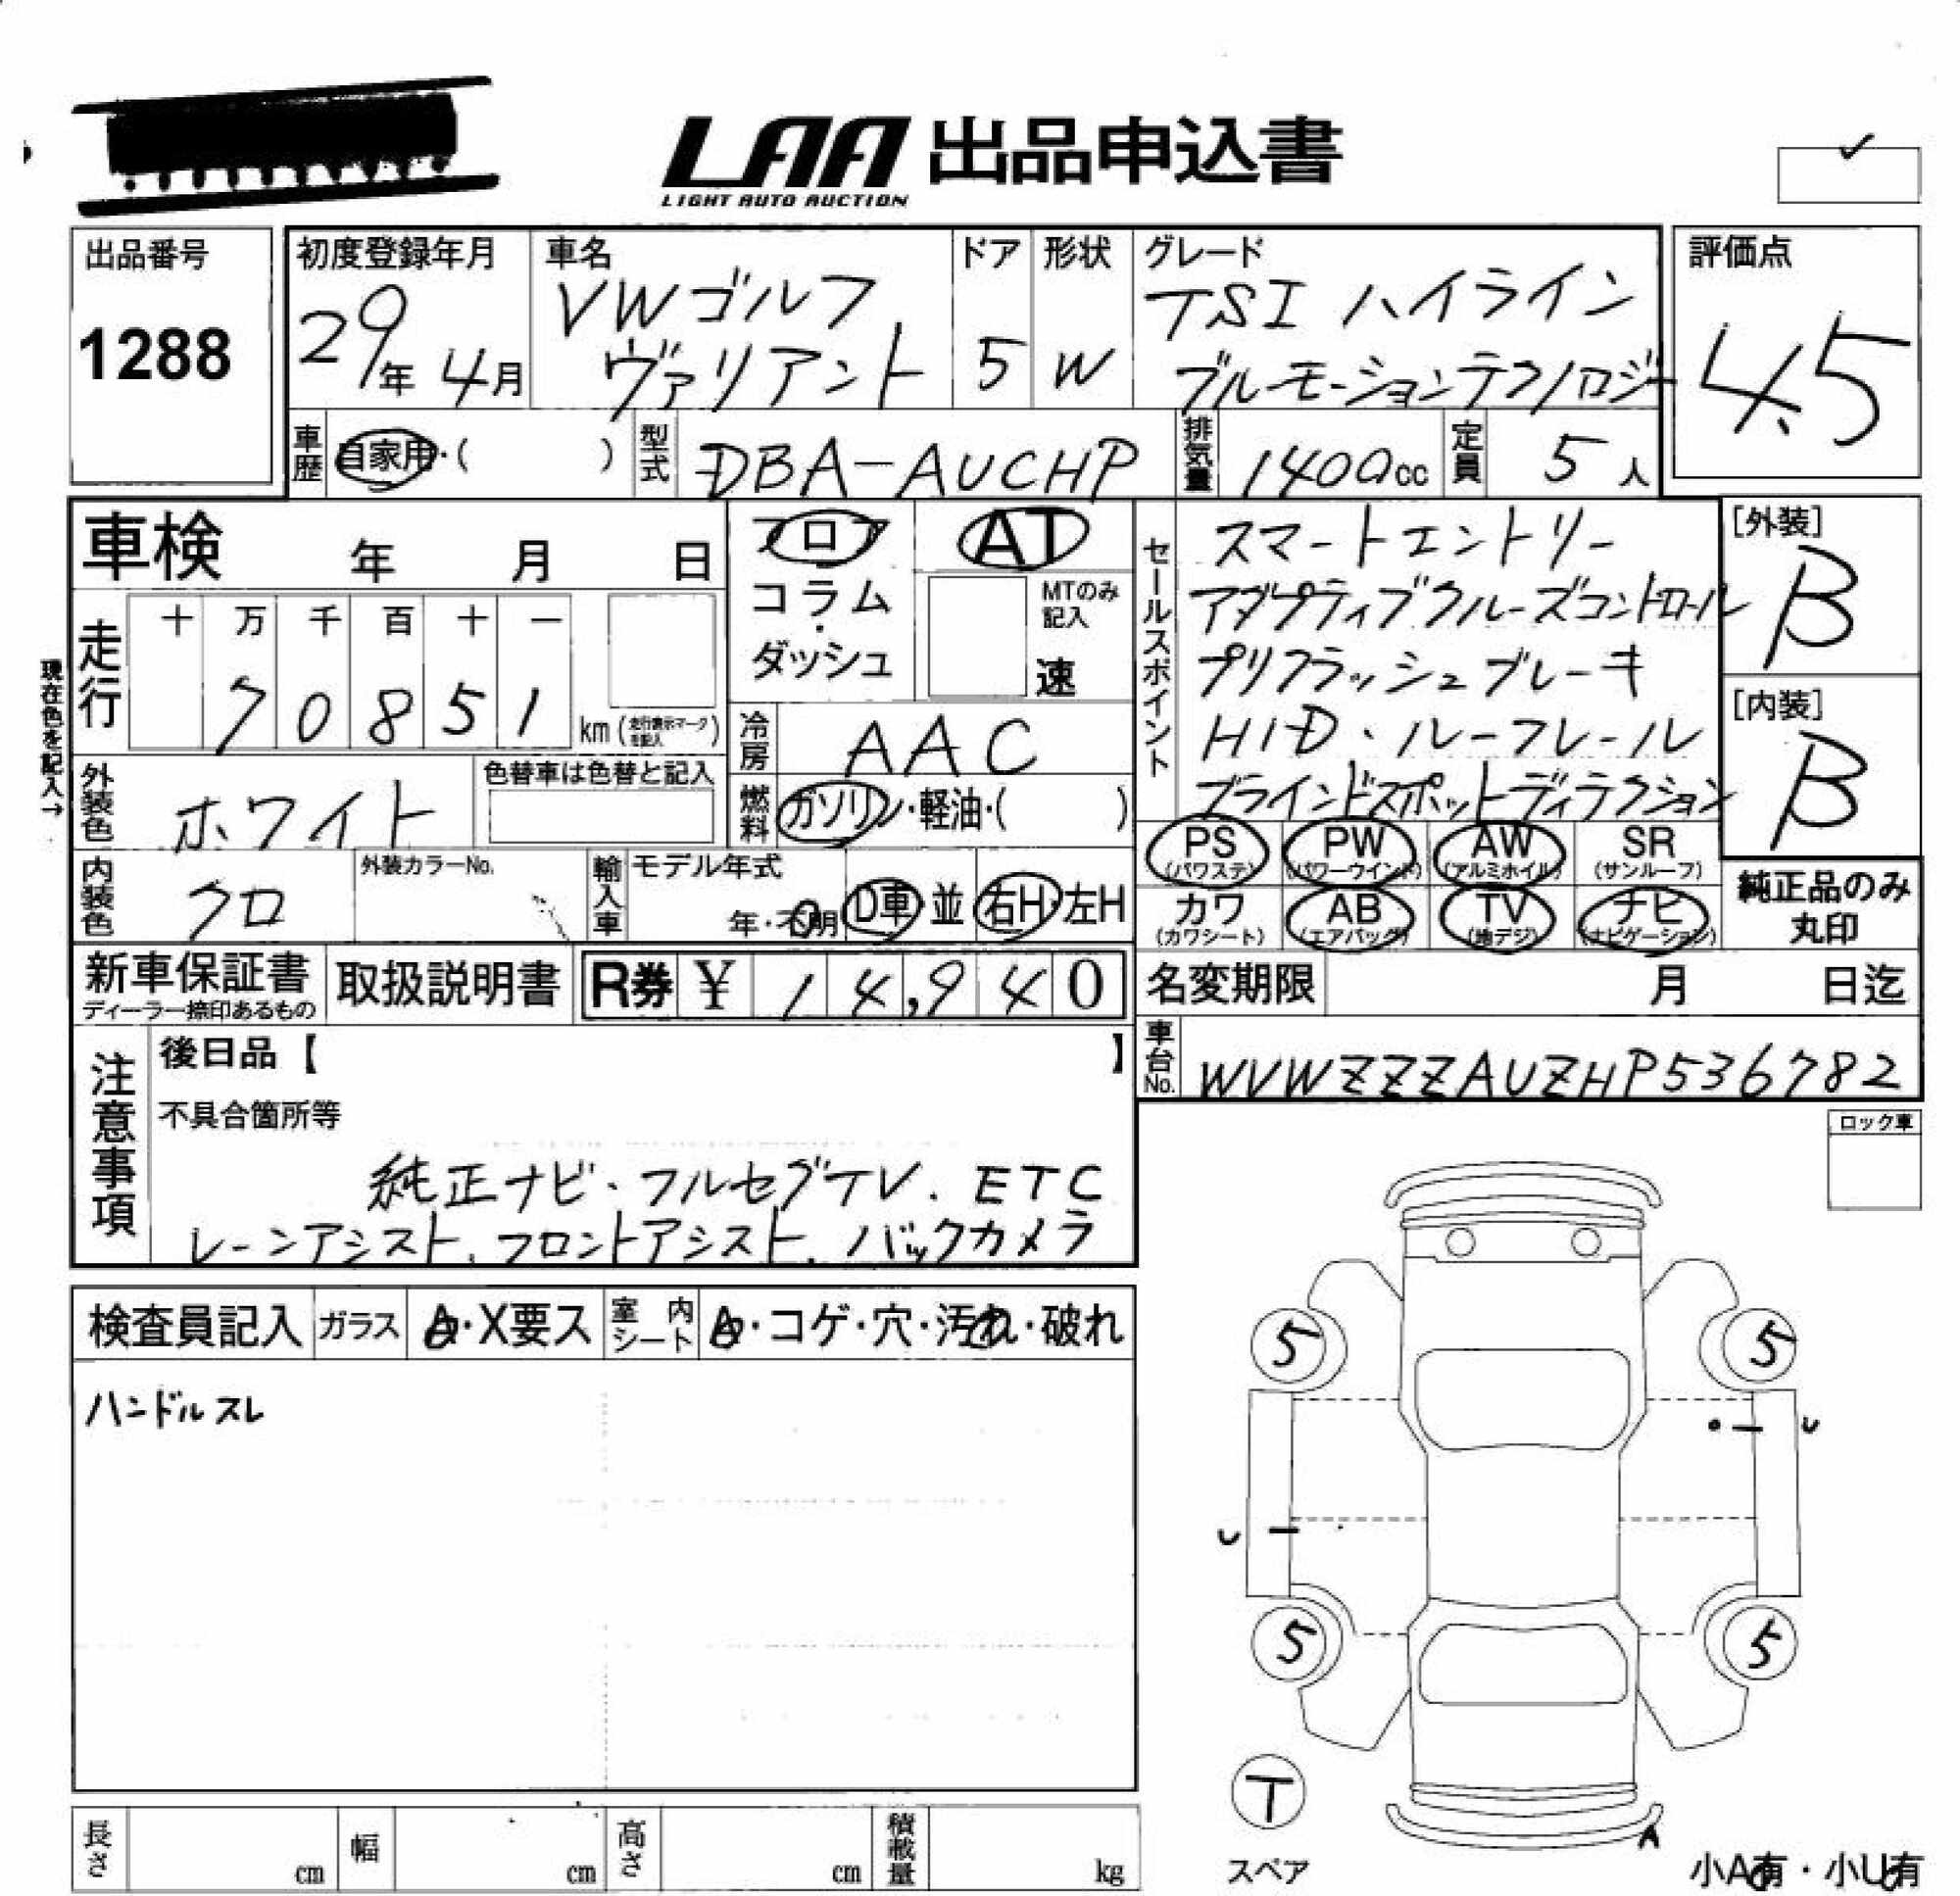 LAA 出品申込書
LIGHT AUTO AUCTION
出品番号
1288
初度登録年月
29年 4月
車名
VWゴルフ
ヴァリアント
ドア
5
形状
W
グレード
TSI ハイライン
ブルーモーションテクノロジー
評価点
4.5
車歴 自家用・( )
型式 DBA-AUCHP
排気量 1400cc
定員 5人
車検 年 月 日
フロア
コラム
・
ダッシュ
AT
MTのみ
記入
速
セールスポイント
スマートエントリー
アダプティブクルーズコントロール
プリクラッシュブレーキ
HID、ルーフレール
ブラインドスポットディテクション
[外装]
B
[内装]
B
現在色を記入→
走行
十 万 千 百 十 一
7 0 8 5 1
km (走行表示マークを記入)
冷房 AAC
燃料 ガソリン・軽油・( )
外装色 ホワイト
色替車は色替と記入
内装色 クロ
外装カラーNo.
輸入車
モデル年式
年・不明
D車・並
右H・左H
PS (パワステ)
PW (パワーウインド)
AW (アルミホイル)
SR (サンルーフ)
カワ (カワシート)
AB (エアバッグ)
TV (地デジ)
ナビ (ナビゲーション)
純正品のみ
丸印
新車保証書
ディーラー捺印あるもの
取扱説明書
R券 ¥ 14,940
名変期限 月 日迄
車台No. WVWZZZAUZHP536782
注意事項
後日品【 】
不具合箇所等
純正ナビ、フルセグTV、ETC
レーンアシスト、フロントアシスト、バックカメラ
ロック車
検査員記入
ガラス A・X要ス
室内シート A・コゲ・穴・汚れ・破れ
ハンドルスレ
5
5
U
U
5
5
T
スペア
A
小A有・小U有
長さ cm
幅 cm
高さ cm
積載量 kg